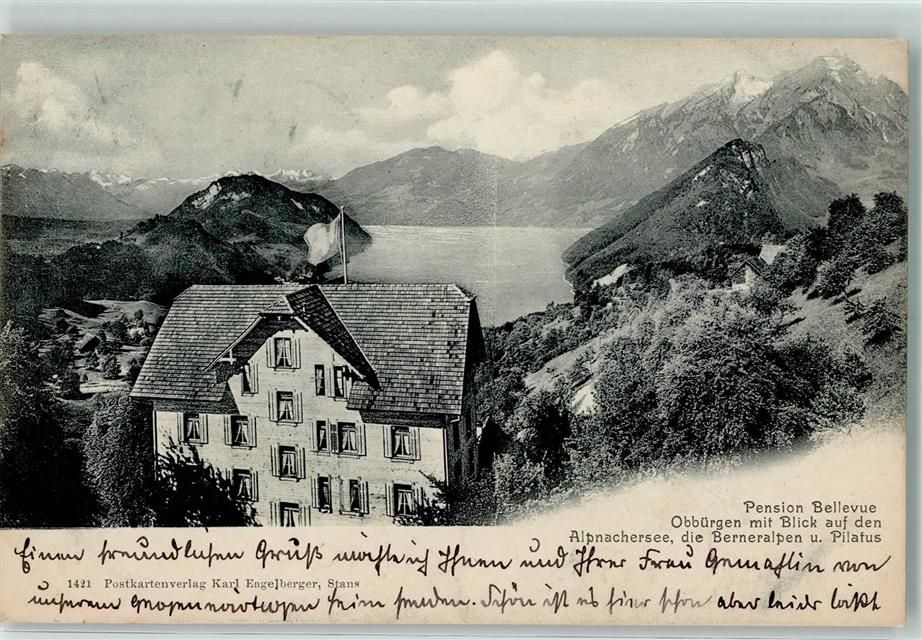 Pension Bellevue
Obbürgen mit Blick auf den
Alpnachersee, die Berneralpen u. Pilatus
Einen freundlichen Gruß möchte ich Ihnen und Ihrer Frau Gemahlin von
1421 Postkartenverlag Karl Engelberger, Stans
unserem heim senden. Schön ist es hier schon aber leider